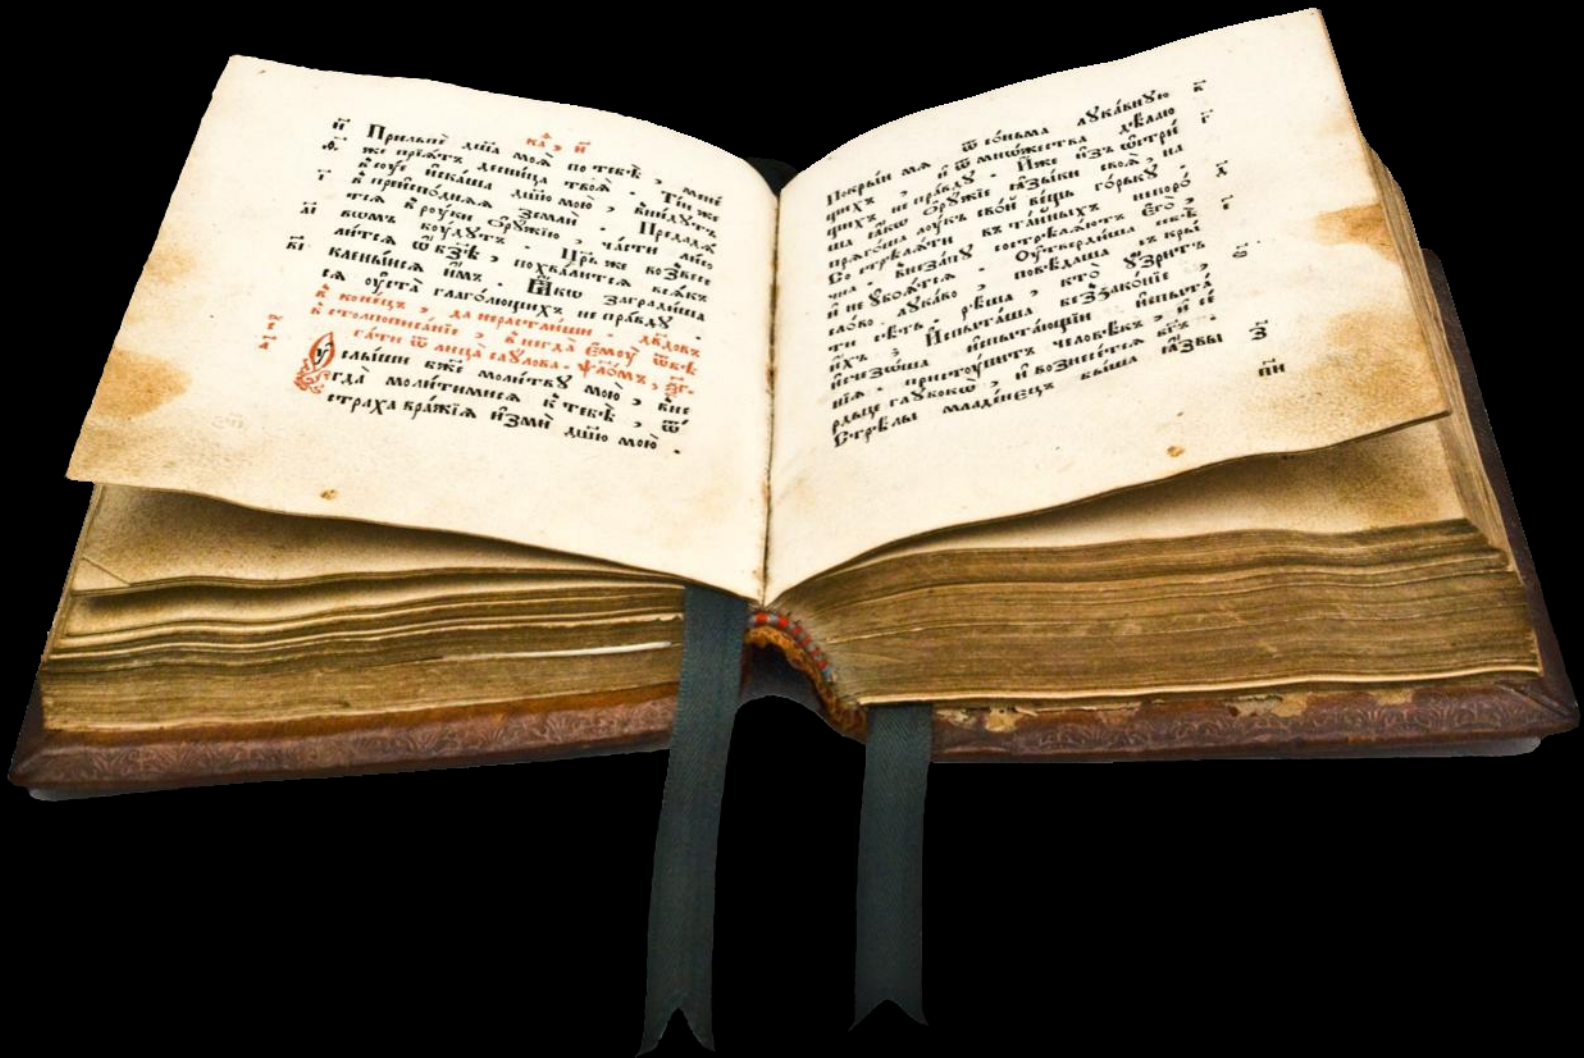 ка҃ , н҃
Прильпѐ дш҃а моѧ̀ по тебѣ̀ , менѐ
же прїѧ́тъ десни́ца твоѧ̀ . Ті́и же
в̾соу́е и҆ска́ша дш҃ю мою̀ , вни́дꙋтъ
в̾ преиспо́днѧѧ землѝ . Предадѧ́
тсѧ в̾ роу́ки ѻ҆рꙋ́жїю , ча́сти лисо
вомъ боу́дꙋтъ . Цр҃ь же возвесе
ли́тсѧ ѡ҆ бз҃ѣ , похва́литсѧ всѧ́къ
клены́йсѧ и҆́мъ . Ꙗ҆́кѡ загради́ша
сѧ оу҆ста̀ глаго́лющихъ непра́вдꙋ
в̾ коне́цъ , да нерастли́ши . дв҃довъ
в̾ столпописа́нїе , в̾негда̀ є҆моу̀ ѿбѣ
га́ти ѿ лица̀ саꙋлова . ѱало́мъ ,
Оу҆слы́ши бж҃е моли́твꙋ мою̀ , вне
гда̀ моли́тимисѧ к̾ тебѣ̀ , ѿ
стра́ха вра́жїѧ и҆змѝ дш҃ю мою̀ .
Покры́й мѧ ѿ со́ньма лꙋка́внꙋю
щихъ , и҆ ѿ мно́жества дѣ́лаю
щихъ непра́вдꙋ . И҆̀же и҆зъ ѡ҆стри́
ша ꙗ҆́кѡ ѻ҆рꙋ́жїе ꙗ҆зы́ки своѧ̀ , на
прѧго́ша лоу́къ сво́й ве́щь го́рькꙋ
Состре́лѧти въ та́йныхъ непоро́
чна . Внеза́пꙋ состре́лѧютъ є҆го̀ ,
и҆ не ꙋбоѧ́тсѧ . Оу҆тверди́ша себѣ̀
сло́во лꙋка́во , повѣ́даша съкры́
ти сѣ́ть . рѣ́ша , кто̀ ꙋ҆́зритъ
и҆́хъ ; И҆спыта́ша беззако́нїе ,
и҆счезо́ша и҆спыта́ющїи и҆спыта́
нїѧ . пристоу́питъ человѣ́къ , и҆ се́
рдьце глꙋбоко̀ , и҆ вознесе́тсѧ бг҃ъ .
Стрѣ́лы младе́нецъ бы́ша ꙗ҆́звы